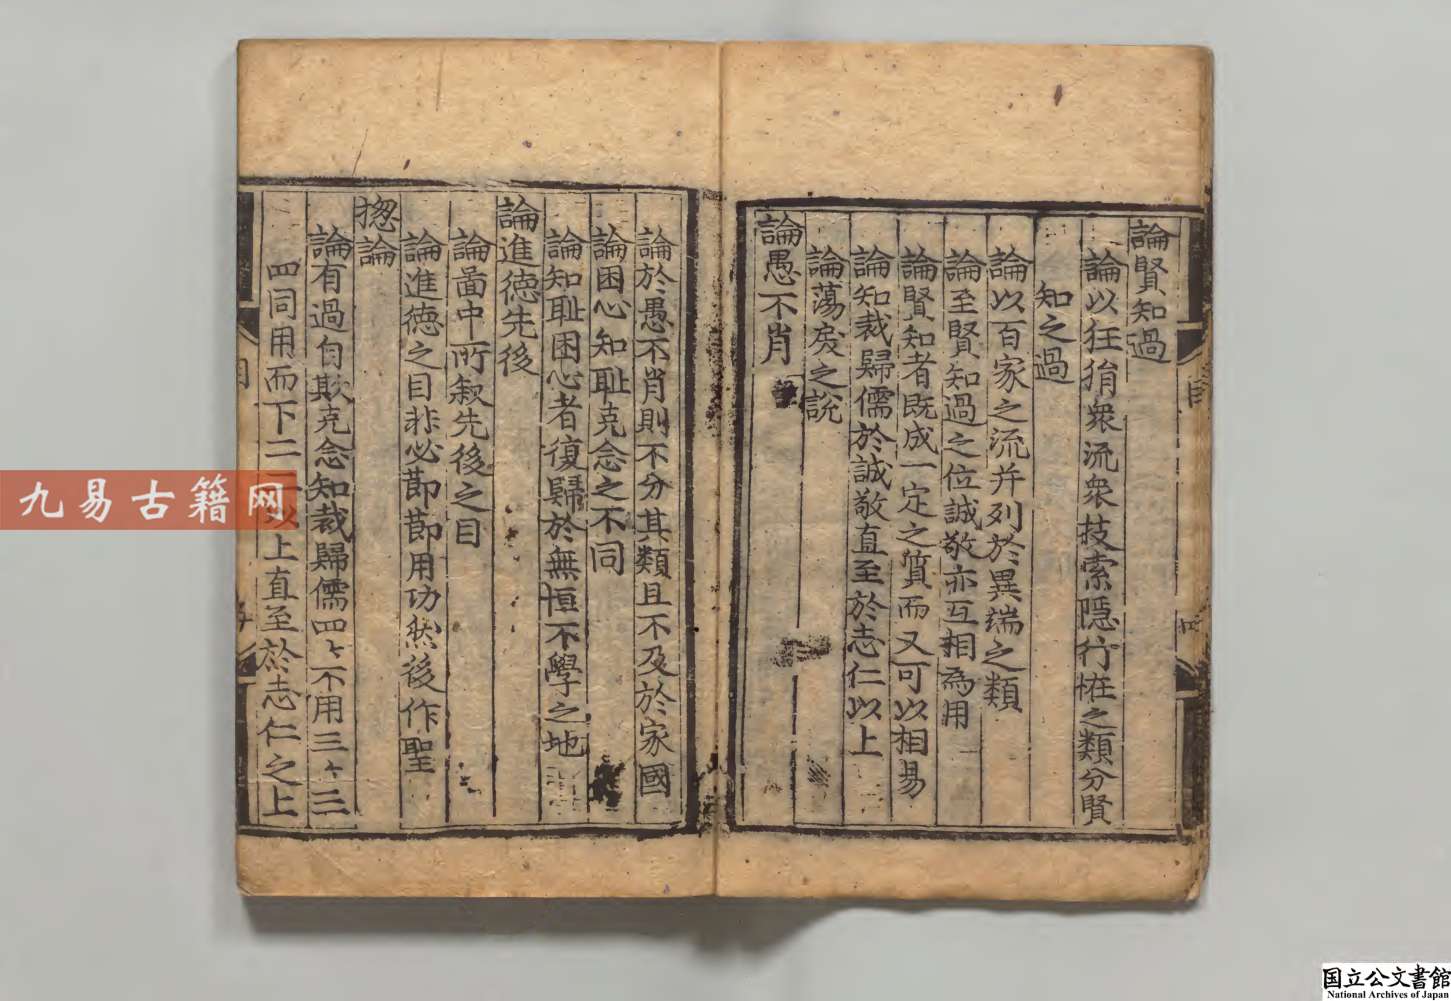 論賢知過
論以狂狷衆流衆技索隱行怪之類分賢
知之過
論以百家之流并列於異端之類
論至賢知過之位誠敬亦互相為用
論賢知者既成一定之質而又可以相易
論知裁歸儒於誠敬直至於志仁以上
論蕩戾之說
論愚不肖
論於愚不肖則不分其類且不及於家國
論困心知恥克念之不同
論知恥困心者復歸於無恒不學之地
論進德先後
論啚中所叙先後之目
論進德之目非必莭莭用功然後作聖
揔論
論有過自欺克念知裁歸儒四々不用三々三
四同用而下二以上直至於志仁之上
九易古籍网
国立公文書館
National Archives of Japan